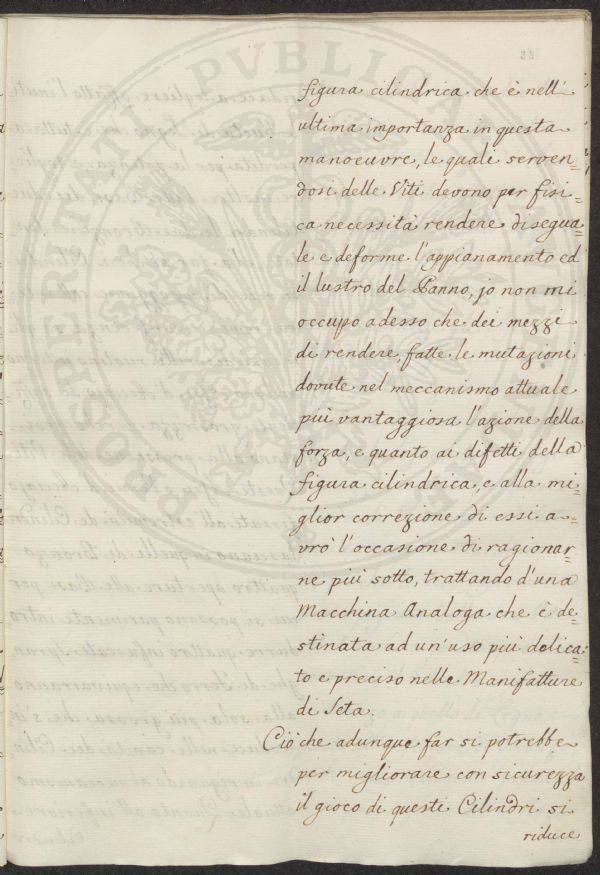 33
figura cilindrica che è nell'
ultima importanza in questa
manoeuvre, le quali serven=
dosi delle Viti devono per fisi=
ca necessità rendere disegua=
le e deforme l'appianamento ed
il lustro del Panno, jo non mi
occupo adesso che dei mezzi
di rendere, fatte le mutazioni
dovute nel meccanismo attuale
più vantaggiosa l'azione della
forza, e quanto ai difetti della
figura cilindrica, e alla mi=
glior correzione di essi a=
vrò l'occasione di ragionar=
ne più sotto, trattando d'una
Macchina Analoga che è de=
stinata ad un'uso più delica=
to e preciso nelle Manifatture
di Seta.
Ciò che adunque far si potrebbe
per migliorare con sicurezza
il gioco di questi Cilindri si
riduce
PUBLICA